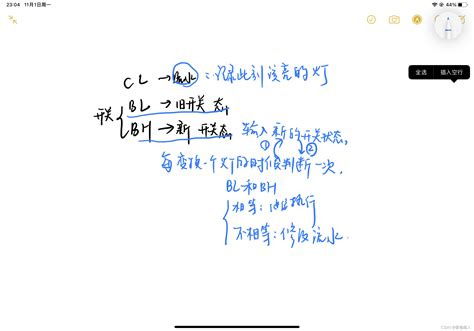 23:04 11月1日周一
44%
全选 插入空行
CL → 流水：记录此刻该亮的灯
开关
BL → 旧开关状态,
BH → 新 开关态, 输入新的开关状态,
① ②
每变换一个灯的时候判断一次,
BL和BH
相等：继续执行
不相等：修改流水.